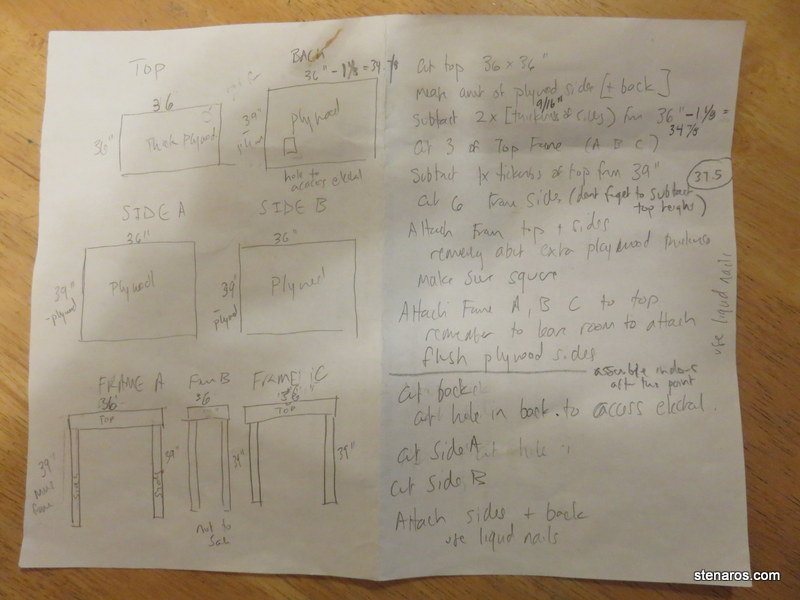 TOP
36
36"
Thick Plywood
BACK
36" - 1 1/8 = 34 7/8
39"
- plywd
plywood
hole to
access elecal
SIDE A
36"
39"
- plywd
Plywood
SIDE B
36"
39"
- plywd
Plywood
FRAME A
36"
TOP
39"
Side
Side
39"
Fram B
36
39"
not to
FRAME C
36"
TOP
39"
Cut top 36 x 36"
Meas amt of plywood sides [+ back]
9/16"
Subtract 2x [thickness of sides] from 36" - 1 1/8 =
34 7/8
Cut 3 of Top Frame (A B C)
Subtract 1x thickness of top from 39"
37.5
Cut 6 Frame Sides (dont forget to subtract
top height)
Attach Fram top + sides
abut extra playwood thickness
make sure square
Attach Frame A, B C to top
remember to leave room to attach
flush plywood sides
use liquid nails
assemble indoors
after this point
Cut back
cut hole in back to access elecal.
Cut side A cut hole
Cut side B
Attach sides + back
use liquid nails
stenaros.com